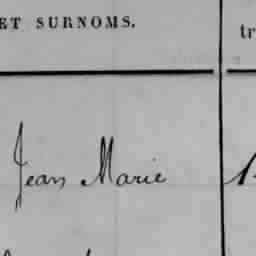 ET SURNOMS.
tr
Jean Marie